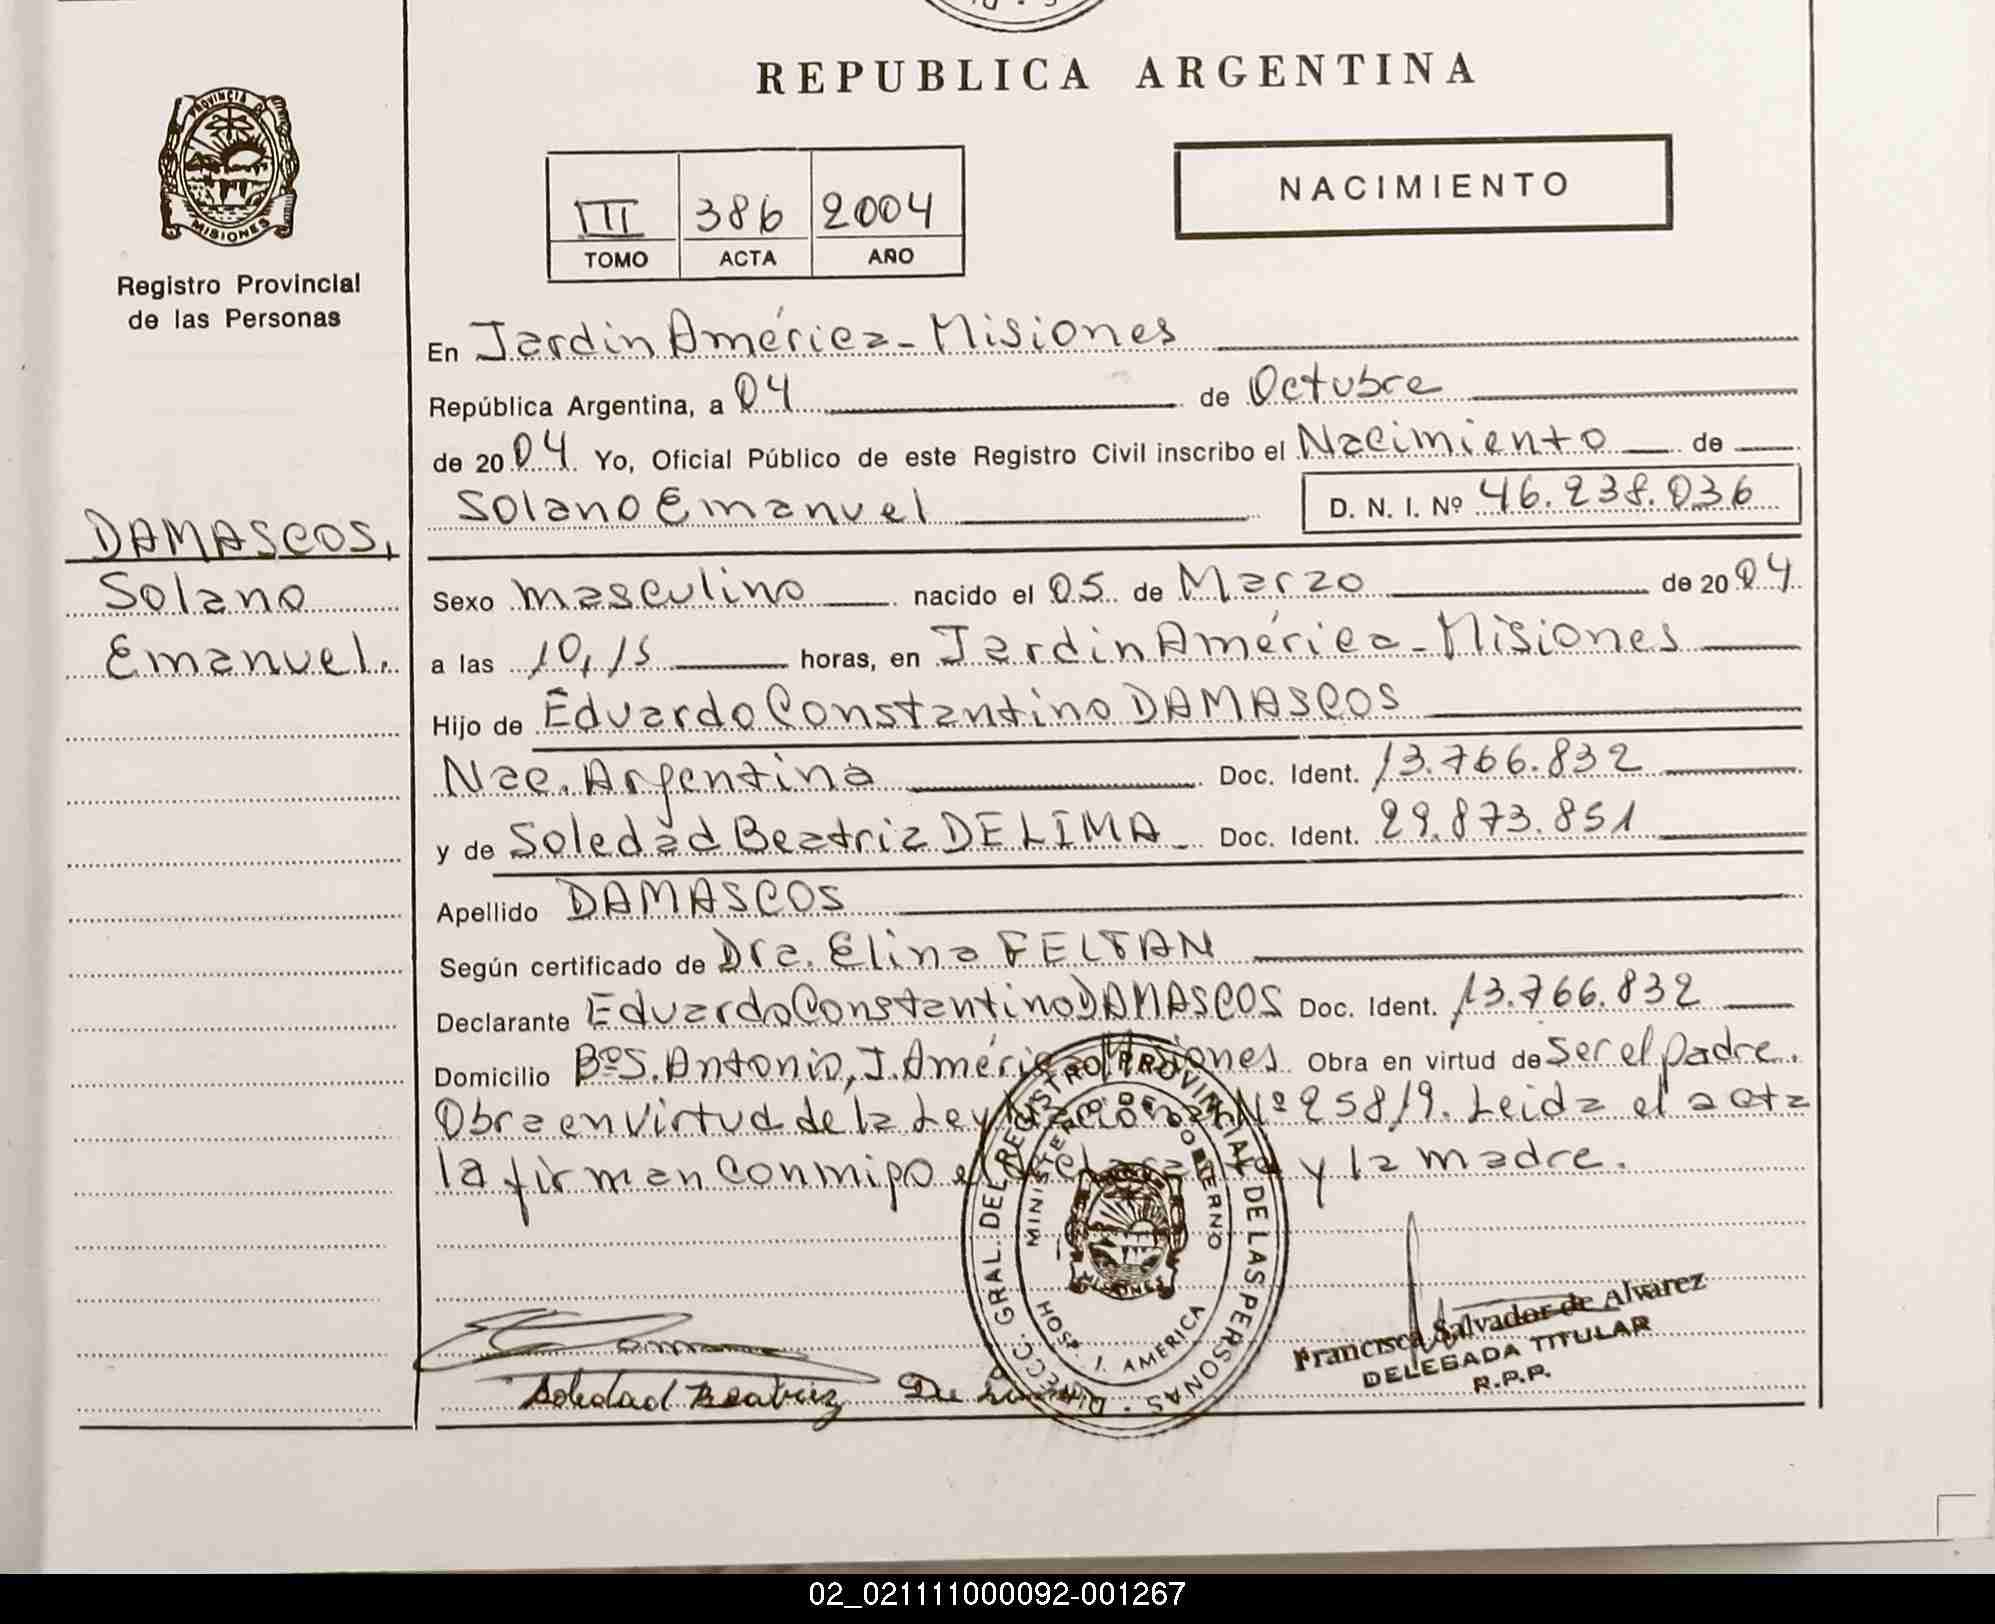 REPUBLICA ARGENTINA
PROVINCIA DE
MISIONES
Registro Provincial
de las Personas
III 386 2004
TOMO ACTA AÑO
NACIMIENTO
DAMASCOS,
Solano
Emanuel.
En Jardin América - Misiones
República Argentina, a 04 de Octubre
de 2004 Yo, Oficial Público de este Registro Civil inscribo el Nacimiento de
Solano Emanuel D. N. I. Nº 46.238.036
Sexo masculino nacido el 05 de Marzo de 2004
a las 10,15 horas, en Jardin América - Misiones
Hijo de Eduardo Constantino DAMASCOS
Nac. Argentina Doc. Ident. 13.766.832
y de Soledad Beatriz DE LIMA Doc. Ident. 29.873.851
Apellido DAMASCOS
Según certificado de Dra. Elina FELTAN
Declarante Eduardo Constantino DAMASCOS Doc. Ident. 13.766.832
Domicilio Bº S. Antonio, J. América Misiones Obra en virtud de Ser el padre.
Obra en virtud de la Ley Nacional Nº 25819. Leida el acta
la firman conmigo el declarante y la madre.
DIRECC. GRAL. DEL REGISTRO PROVINCIAL DE LAS PERSONAS
MINISTERIO DE GOBIERNO
MISIONES
HOSP. J. AMERICA
Soledad Beatriz De Lima
Francisca Salvador de Alvarez
DELEGADA TITULAR
R.P.P.
02_021111000092-001267